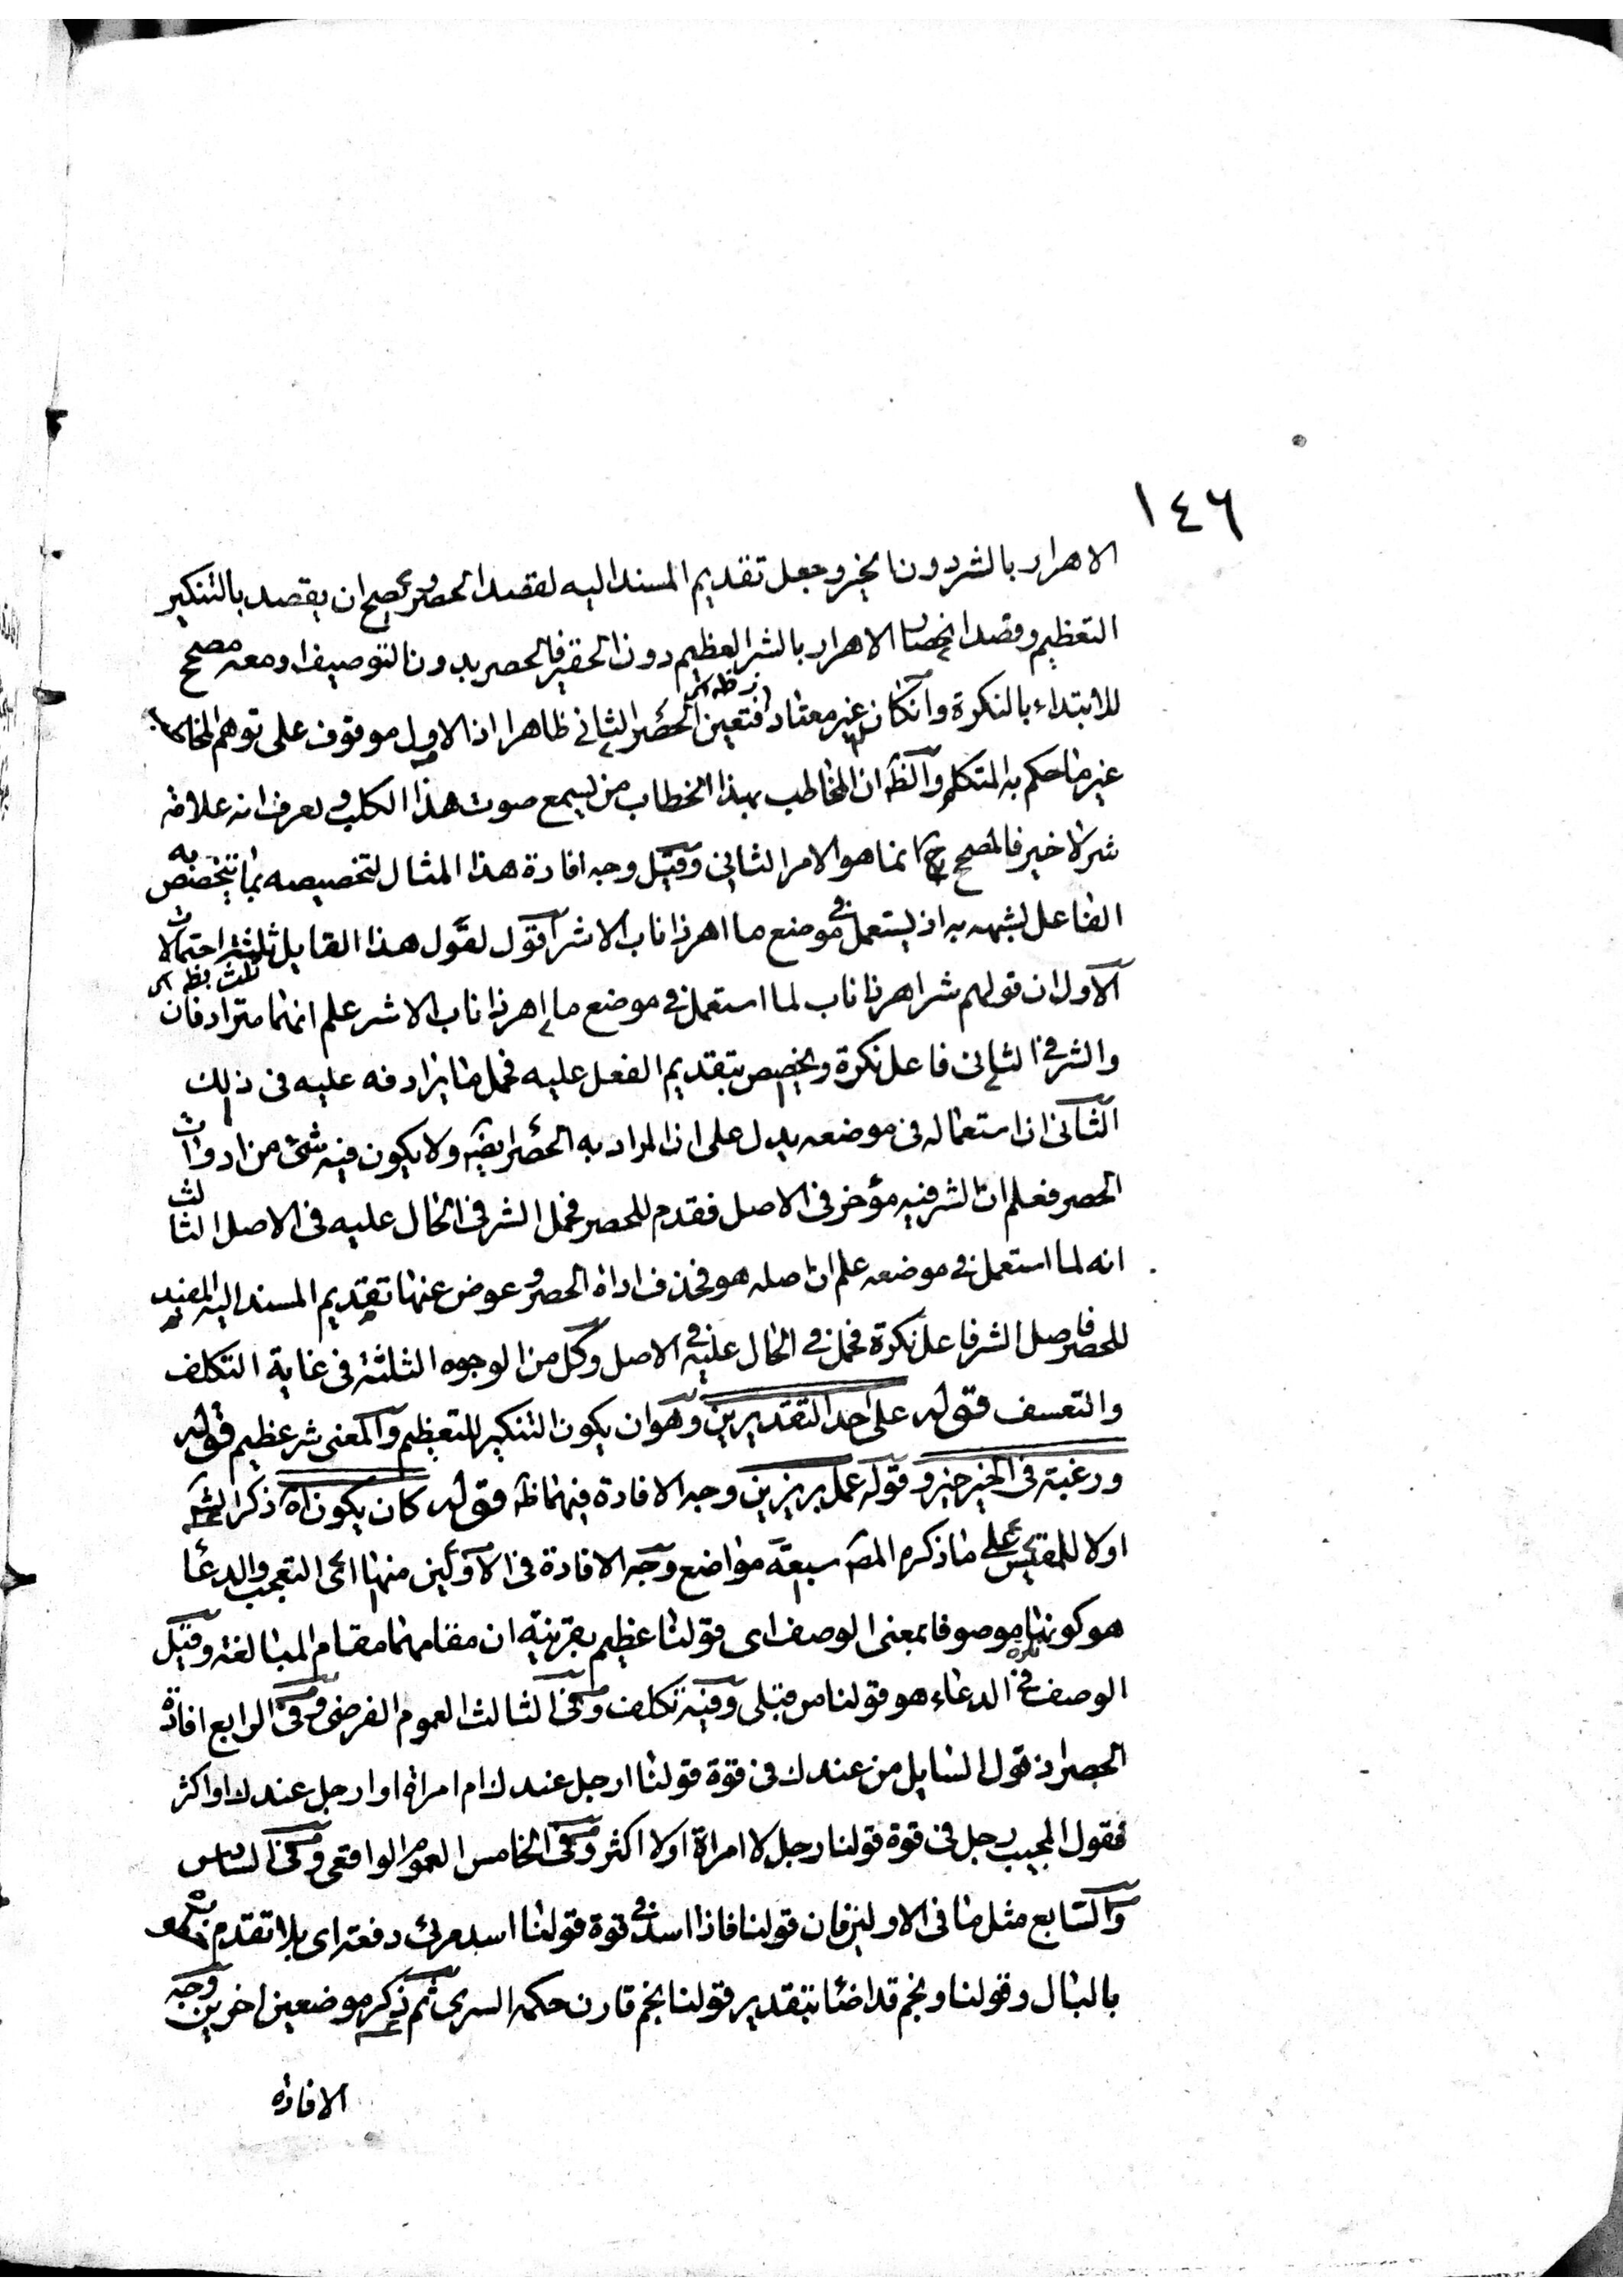 ١٤٦
الاهرار بالشر دون الخير وجعل تقديم المسند اليه لقصد الحصر ويصح ان يقصد بالتنكير
التعظيم وقصد انحصار الاهرار بالشر العظيم دون الحقير فالحصر بدون التوصيف او معه مصحح
للابتداء بالنكرة وان كان غير معتاد فتعين الحصر الثاني ظاهرا اذ الاول موقوف على توهم المخاطب
غير ما حكم به المتكلم والظ ان المخاطب بهذا الخطاب من يسمع صوت هذا الكلب ويعرف انه علامة
شر لا خير فالمصحح ح انما هو الامر الثاني وقيل وجه افادة هذا المثال لتخصيصه بما يتخصص به
الفاعل لشبهه به اذ يستعمل في موضع ما اهر ذا ناب الا شر اقول لقول هذا القايل ثلثة احتمالات
الاول ان قولهم شر اهر ذا ناب لما استعمل في موضع ما اهر ذا ناب الا شر علم انهما مترادفان
والشر في الثاني فاعل نكرة ويخصص بتقديم الفعل عليه فحمل ما يرادفه عليه في ذلك
الثاني ان استعماله في موضعه يدل على ان المراد به الحصر ايضا ولا يكون فيه شئ من ادوات
الحصر فعلم ان الشر فيه مؤخر في الاصل فقدم للحصر فحمل الشر في الحال عليه في الاصل الثالث
انه لما استعمل في موضعه علم ان اصله هو فحذف اداة الحصر وعوض عنها تقديم المسند اليه المفيد
للحصر فاصل الشر فاعل نكرة فحمل في الحال عليه في الاصل وكل من الوجوه الثلثة في غاية التكلف
والتعسف قوله على احد التقديرين وهو ان يكون التنكير للتعظيم والمعنى شر عظيم قوله
ورغبة في الخير خير وقوله عمل بر يزين وجه الافادة فيهما ظ قوله كان يكون اه ذكر الش
اولا للمقيس على ما ذكره المص سبعة مواضع وجه الافادة في الاولين منها اعنى التعجب والدعاء
هو كونها موصوفا بمعنى الوصف اى قولنا عظيم بقرينة ان مقامهما مقام المبالغة وقيل
الوصف في الدعاء هو قولنا من قبلى وفيه تكلف وفي الثالث العموم الفرضى وفي الرابع افادة
الحصر اذ قول السايل من عندك في قوة قولنا ارجل عندك ام امراة او ارجل عندك او اكثر
فقول المجيب رجل في قوة قولنا رجل لا امراة او لا اكثر وفي الخامس العموم الواقعى وفي السادس
والسابع مثل ما في الاولين فان قولنا فاذا اسد في قوة قولنا اسد مرئ دفعة اى بلا تقدم
بالبال وقولنا ونجم قد اضا بتقدير قولنا نجم قارن حكمه السرى ثم ذكر موضعين اخرين وجه
الافادة